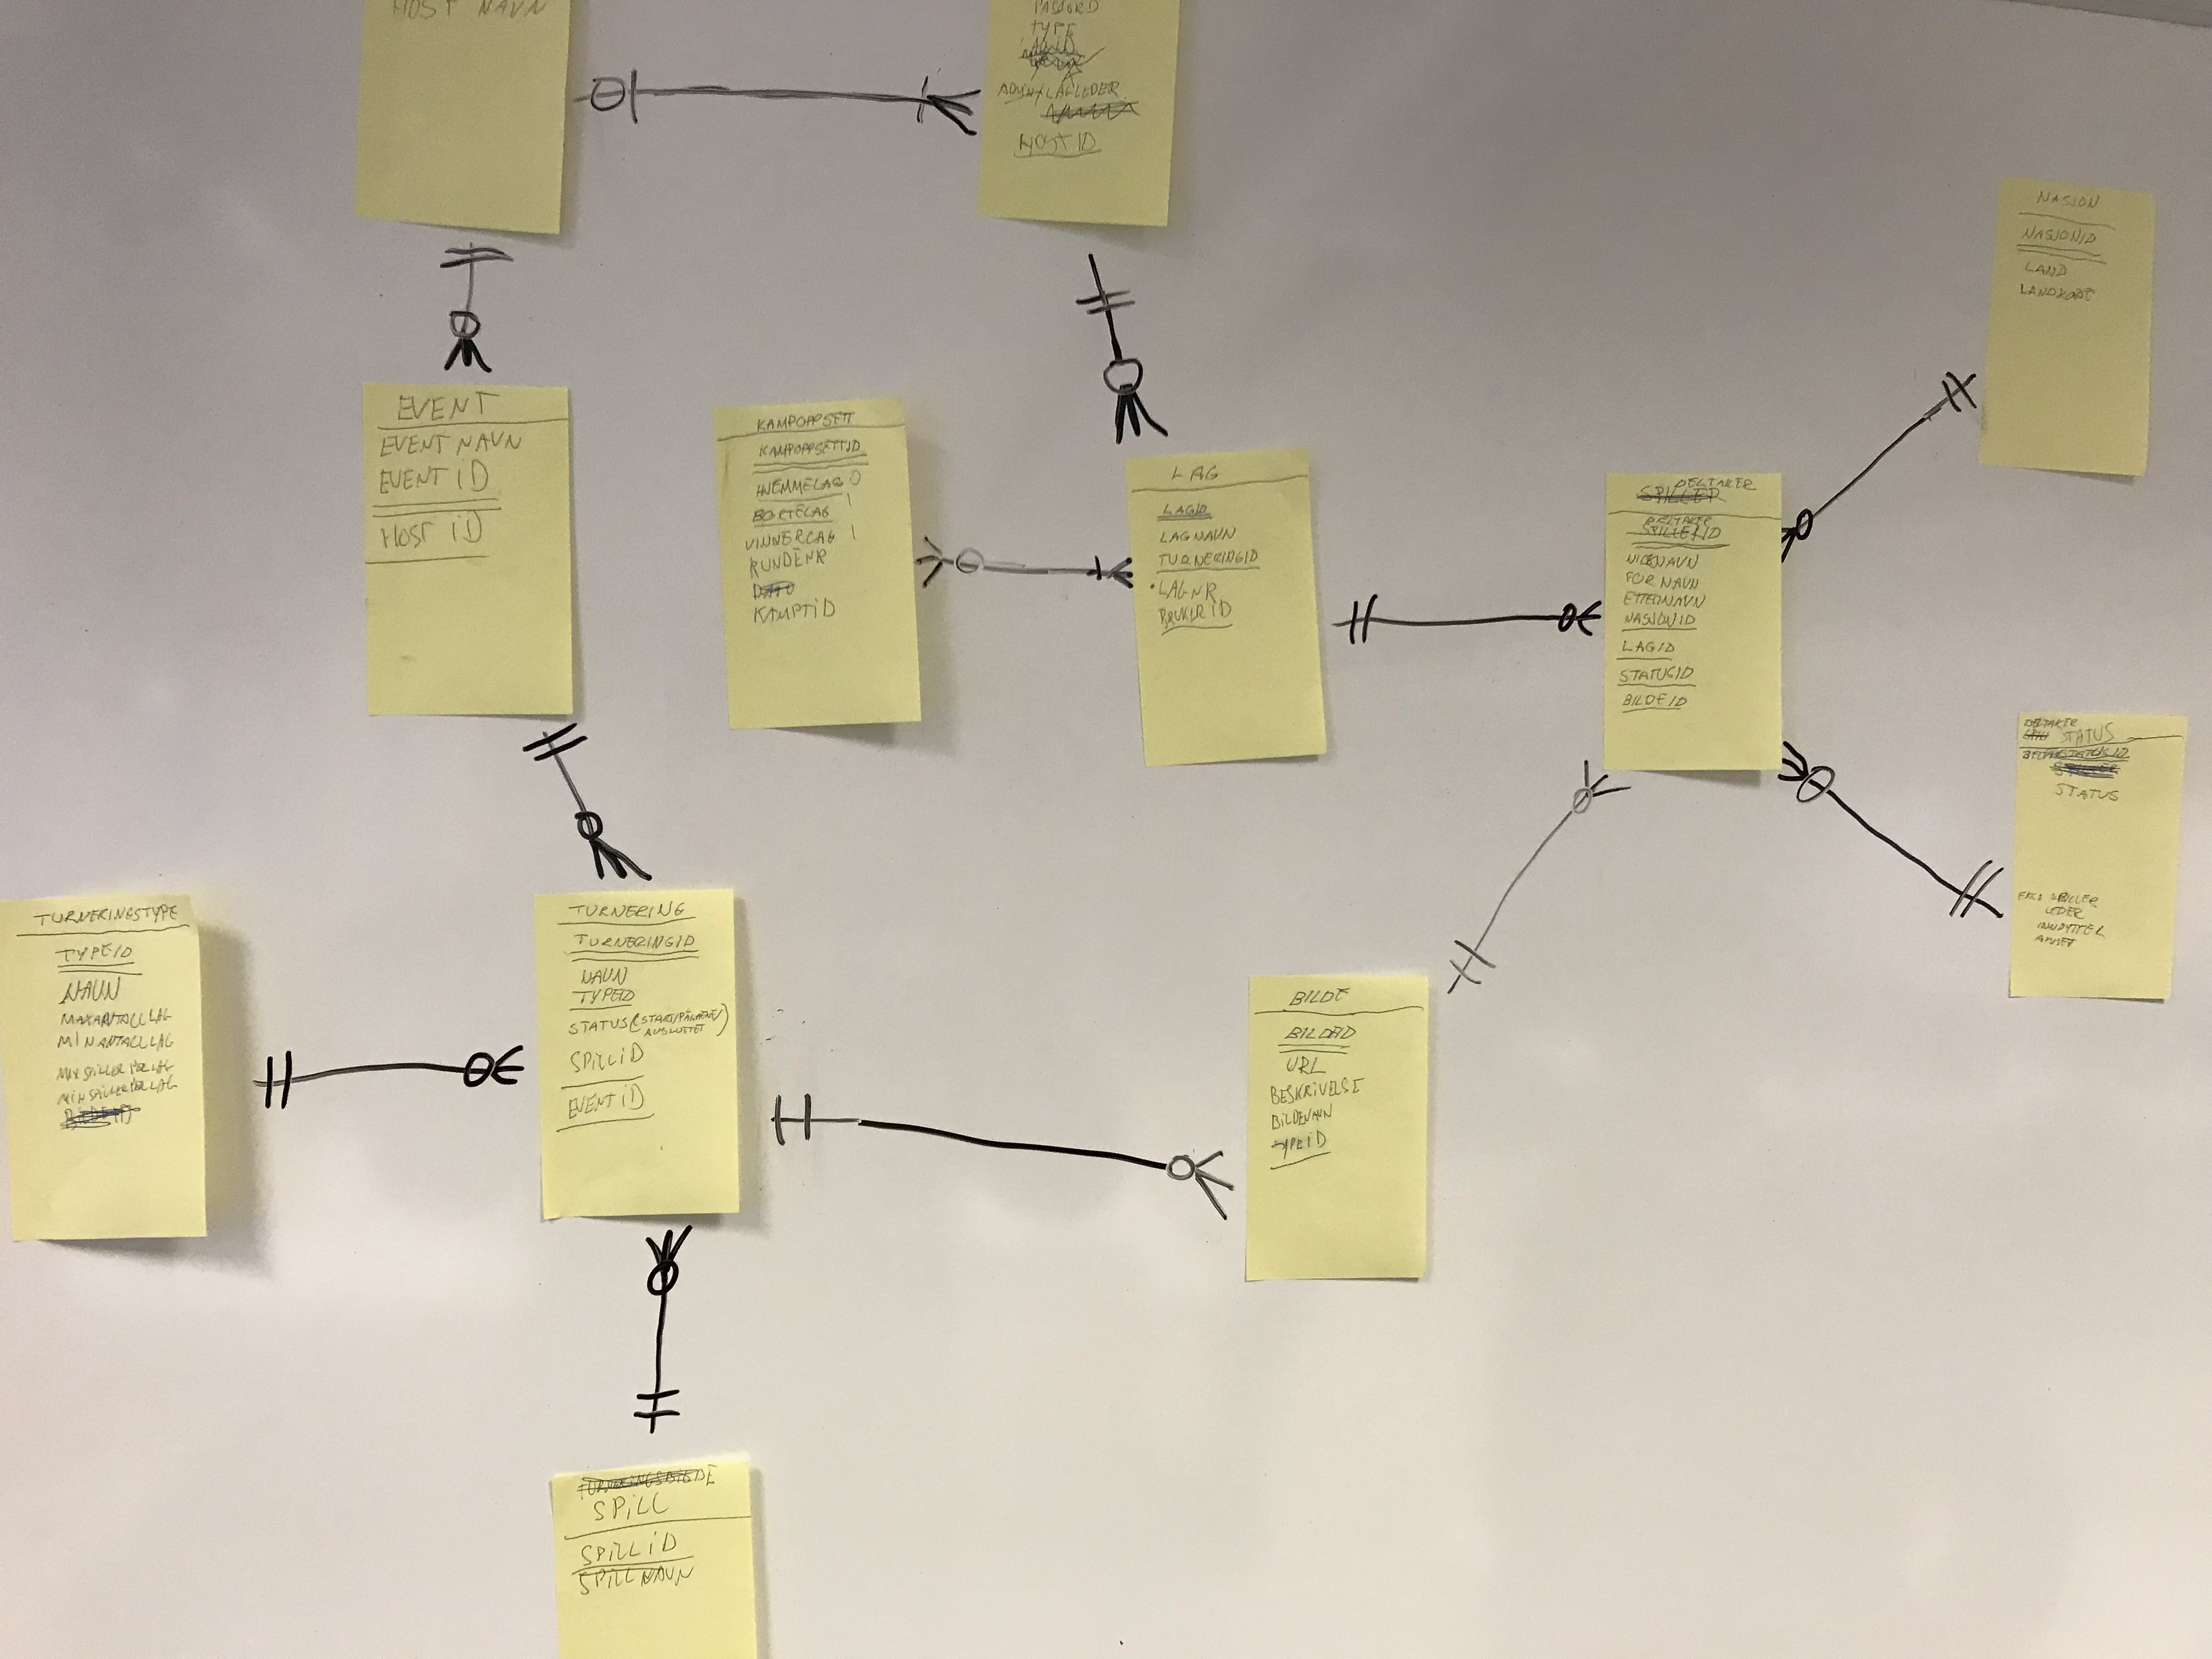 HOST NAVN
PASSORD
TYPE
ADMIN/LAGLEDER
HOST ID
NASJON
NASJONID
LAND
LANDKODE
EVENT
EVENT NAVN
EVENT iD
HOST iD
KAMPOPPSETT
KAMPOPPSETTID
HJEMMELAG 0
BORTELAG 1
VINNERLAG 1
RUNDENR
DATO
KAMPTiD
LAG
LAGID
LAGNAVN
TURNERINGID
• LAGNR
BRUKER iD
DELTAKER
SPILLER
DELTAKER
SPILLERID
NICKNAVN
FORNAVN
ETTERNAVN
NASJONID
LAGID
STATUSID
BILDEID
DELTAKER
STATUS
STATUS
SPILLER
LEDER
INNBYTTER
ANNET
TURNERINGSTYPE
TYPEID
NAVN
MAXANTALLLAG
MINANTALLLAG
MAXSPILLERPERLAG
MINSPILLERPERLAG
TURNERING
TURNERINGID
NAVN
TYPEID
STATUS (START/PÅGÅENDE/
AVSLUTTET)
SPiLLiD
EVENTiD
BILDE
BILDEID
URL
BESKRiVELSE
BiLDENAVN
TYPEiD
TURNERINGSBILDE
SPiLL
SPiLLiD
SPiLLNAVN